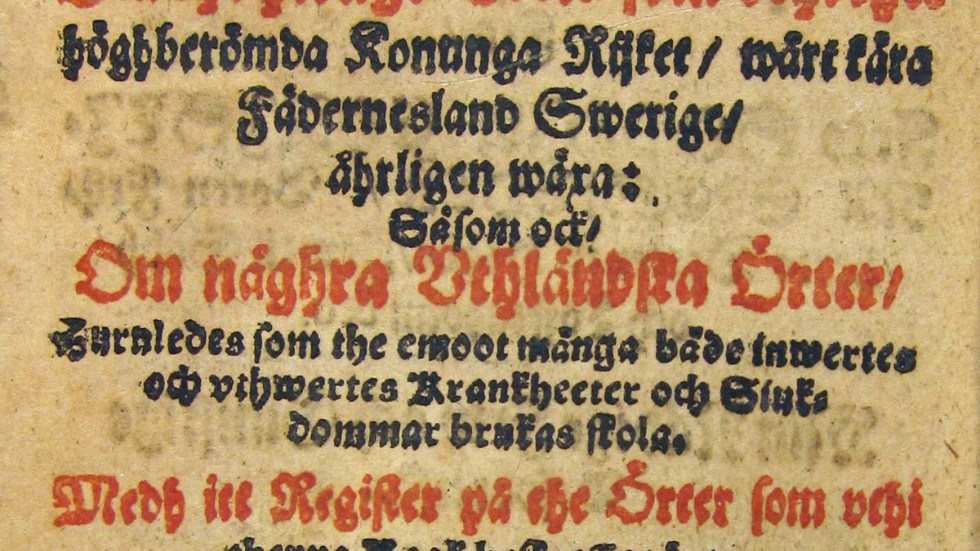 höghberömda Konunga Rijket / wårt kära
Fädernesland Swerige/
åhrligen wäxa:
Såsom ock/
Om någhra Vthländska Örter/
Hurnledes som the emoot många både inwertes
och vthwertes Krankheeter och Siuk-
dommar brukas skola.
Medh itt Register på the Örter som vthi